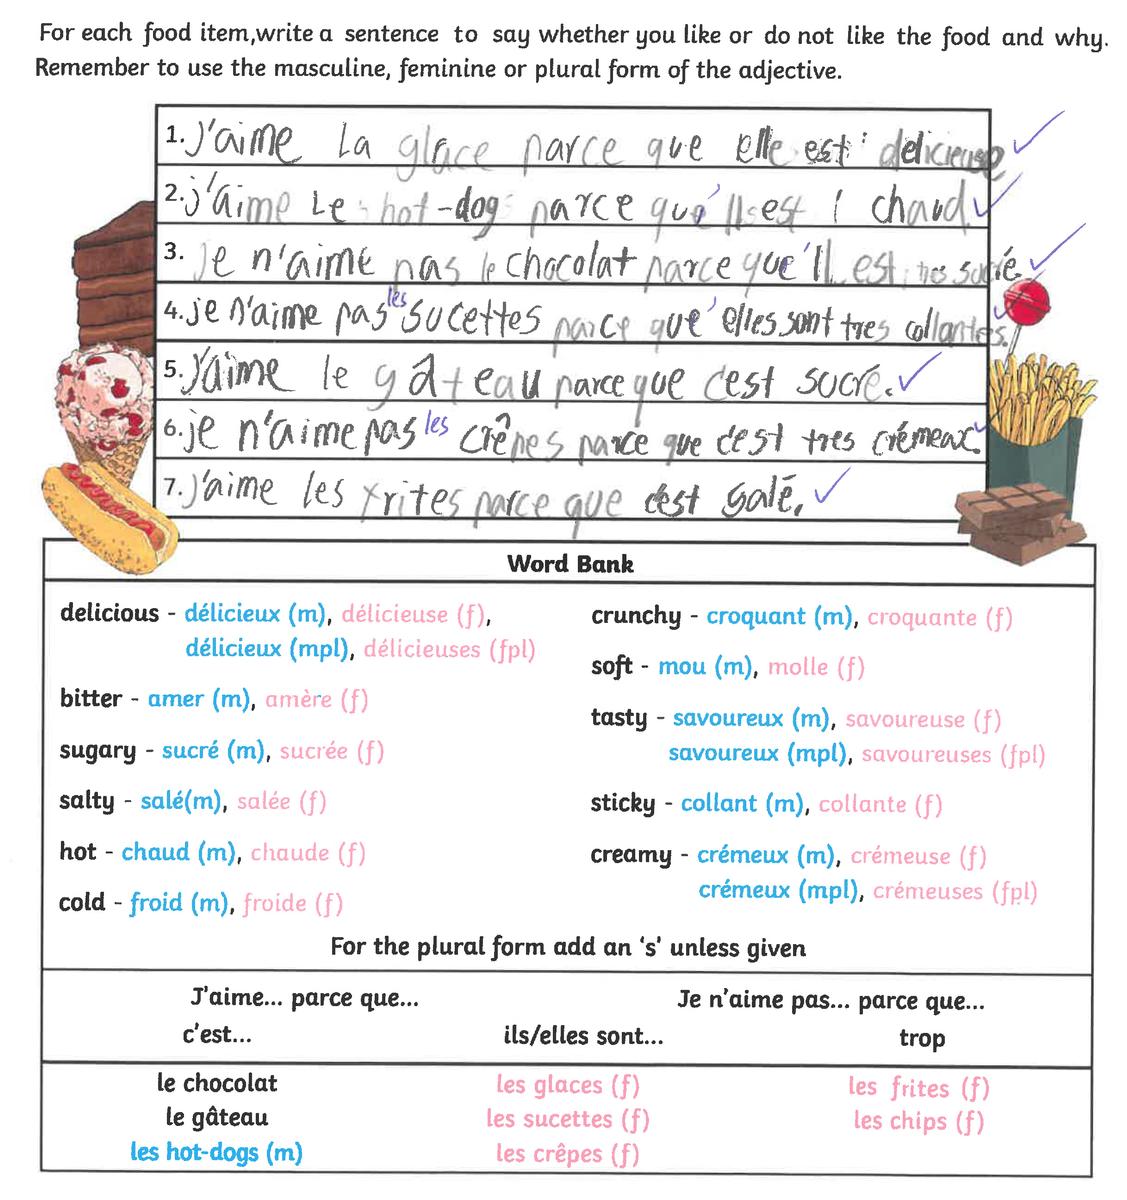 For each food item,write a sentence to say whether you like or do not like the food and why.
Remember to use the masculine, feminine or plural form of the adjective.
1. J'aime La glace parce que elle est délicieuse
2. j'aime Le hot-dog parce qu'il est chaud.
3. je n'aime pas le chocolat parce que'il est tres sucré.
4. je n'aime pas les sucettes parce que'elles sont tres collantes.
5. J'aime le gâteau parce que c'est sucré.
6. je n'aime pas les crêpes parce que c'est tres crémeax.
7. J'aime les frites parce que c'est salé.
Word Bank
delicious - délicieux (m), délicieuse (f),
délicieux (mpl), délicieuses (fpl)
bitter - amer (m), amère (f)
sugary - sucré (m), sucrée (f)
salty - salé(m), salée (f)
hot - chaud (m), chaude (f)
cold - froid (m), froide (f)
crunchy - croquant (m), croquante (f)
soft - mou (m), molle (f)
tasty - savoureux (m), savoureuse (f)
savoureux (mpl), savoureuses (fpl)
sticky - collant (m), collante (f)
creamy - crémeux (m), crémeuse (f)
crémeux (mpl), crémeuses (fpl)
For the plural form add an 's' unless given
J'aime... parce que... Je n'aime pas... parce que...
c'est... ils/elles sont... trop
le chocolat les glaces (f) les frites (f)
le gâteau les sucettes (f) les chips (f)
les hot-dogs (m) les crêpes (f)